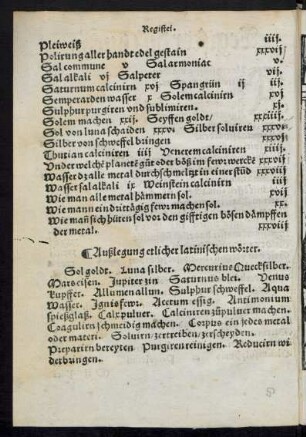 Register.
Pleiweiß iiij.
Polirung aller handt edel gestain xxxvij
Sal commune v Sal armoniac v.
Sal alkali vj Salpeter vij.
Saturnum calcinirn xvj Spangrün ij iij.
Semperarden wasser x Solem calcinirn xvj
Sulphur purgiren vnd sublimiren. xj.
Solem machen xxij. Seyffen goldt/ xxciiij.
Sol von luna schaiden xxxv. Silber soluiren xxxv
Silber von schweffel bringen xxxvj
Thucian calciniren iiij Venerem calciniren iiij.
Vnder welche planete güt oder böß im fewr werckē xxxvij
Wasser dz alle metal durch schmeltzt in einer stūd xxxvij
Wasser sal alkali ix Weinstein calcinirn iiij
Wie man alle metal hämmern sol. xvj
Wie mann ein dürtägig fewr machen sol. xx.
Wie mañ sich hüten sol vor den gifftigen bösen dämpffen
der metal. xxxviij.
¶ Außlegung etlicher latinischen wörter.
Sol goldt. Luna silber. Mercurius Quecksilber.
Mars eisen. Jupiter zin Saturnus blei. Venus
kupffer. Allumen allun. Sulphur schweffel. Aqua
Wasser. Ignis fewr. Acetum essig. Antimonium
spießglaß. Calx puluer. Calciniren zů puluer machen.
Coagulirn schmeidig machen. Corpus ein jedes metal
oder materi. Soluirn/ zertreiben/ zerscheyden.
Preparirn bereyten Purgiren reinigen. Reducirn wi
derbungen.